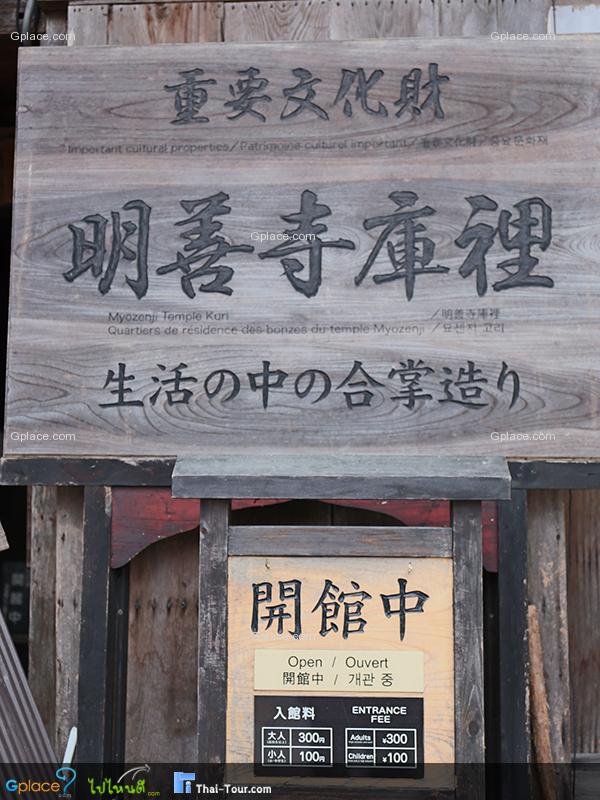 重要文化財
Important cultural properties／Patrimoine culturel important／重要文化財／중요문화재
明善寺庫裡
Myozenji Temple Kuri ／明善寺庫裡
Quartiers de résidence des bonzes du temple Myozenji ／묘센지 고리
生活の中の合掌造り
開館中
Open / Ouvert
開館中 / 개관 중
入館料 ENTRANCE FEE
大人 300円 Adults ¥300
小人 100円 Children ¥100
Gplace.com
Gplace.com
Gplace.com
Gplace.com
Gplace.com
Gplace ไปไหนดี.com Thai-Tour.com